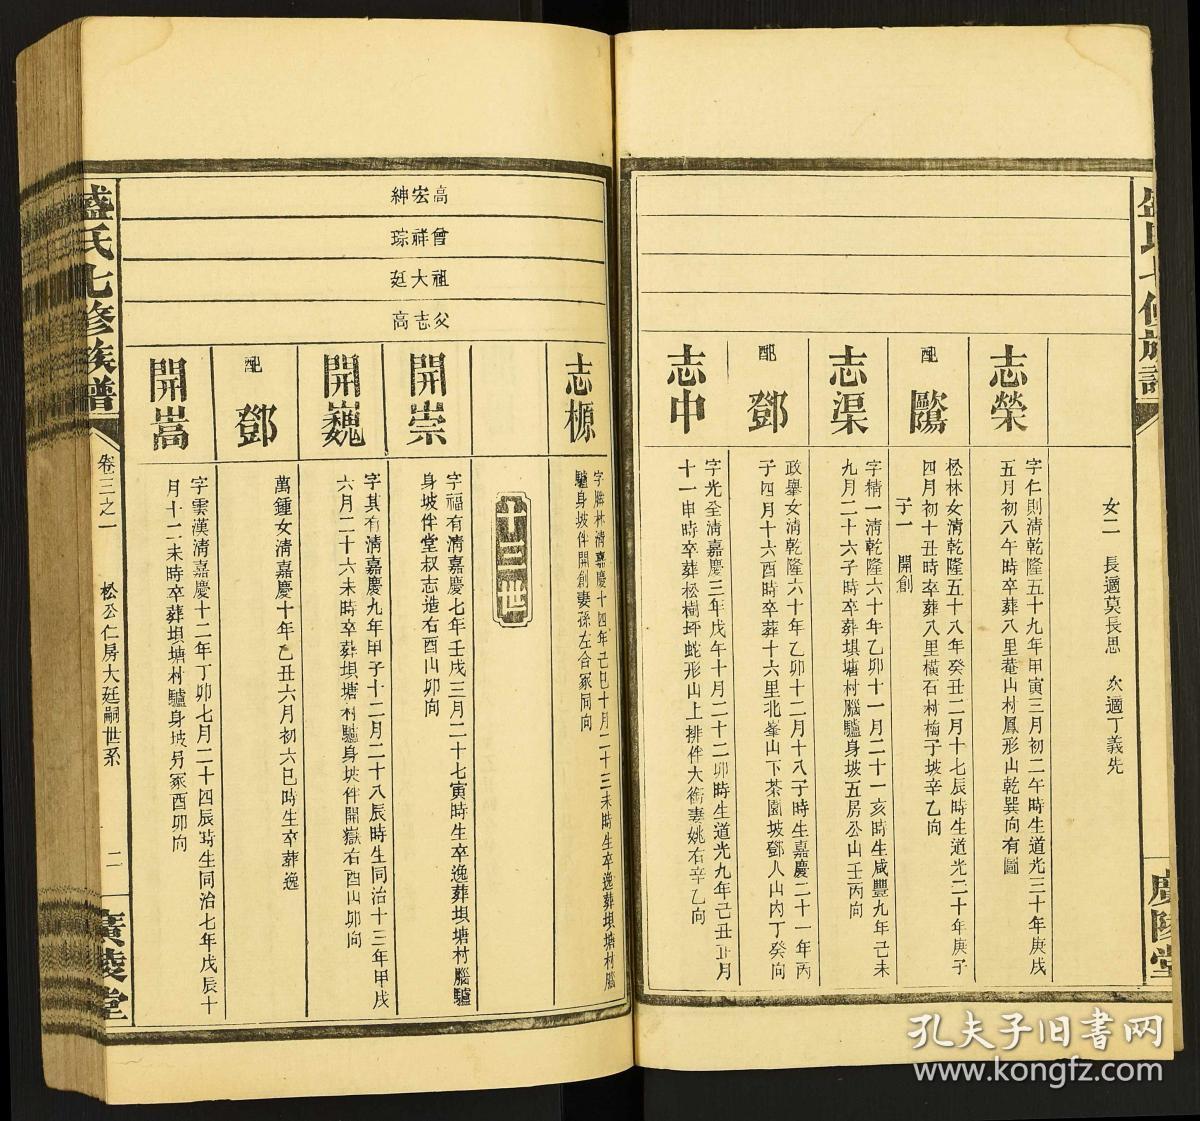 盛氏七修族譜
廣陵堂
女二 長適莫長思 次適丁義先
志榮
字仁則清乾隆五十九年甲寅三月初二午時生道光三十年庚戌
五月初八午時卒葬八里菴山村鳳形山乾巽向有圖
配 歐陽
松林女清乾隆五十八年癸丑二月十七辰時生道光二十年庚子
四月初十丑時卒葬八里橫石村梅子坡辛乙向
子一 開創
志渠
字精一清乾隆六十年乙卯十一月二十一亥時生咸豐九年己未
九月二十六子時卒葬垻塘村腦驢身坡五房公山壬丙向
配 鄧
政舉女清乾隆六十年乙卯十二月十八子時生嘉慶二十一年丙
子四月十六酉時卒葬十六里北峯山下茶園坡鄧人山内丁癸向
志中
字光全清嘉慶三年戊午十月二十二卯時生道光九年己丑正月
十一申時卒葬松樹坪蛇形山上排伴大衛妻姚右辛乙向
高 宏 紳
曾 祥 琮
祖 大 廷
父 志 高
志榞
字 林清嘉慶十四年己巳十月二十三未時生卒逸葬垻塘村腦
驢身坡伴開創妻孫左合冢同向
十三世
開崇
字福有清嘉慶七年壬戌三月二十七寅時生卒逸葬垻塘村腦驢
身坡伴堂叔志造右酉山卯向
開巍
字其有清嘉慶九年甲子十二月二十八辰時生同治十三年甲戌
六月二十六未時卒葬垻塘村驢身坡伴開嶽右酉山卯向
配 鄧
萬鍾女清嘉慶十年乙丑六月初六巳時生卒葬逸
開嵩
字雲漢清嘉慶十二年丁卯七月二十四辰時生同治七年戊辰十
月十二未時卒葬垻塘村驢身坡另冢酉卯向
盛氏七修族譜
卷三之一
松公仁房大廷嗣世系
二
廣陵堂
孔夫子旧書网
www.kongfz.com